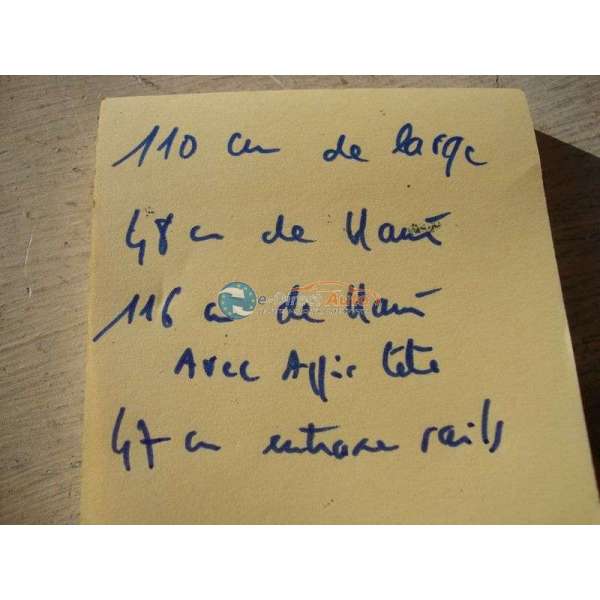 110 cm de large
48 cm de Haut
116 cm de Haut
Avec Appie tete
47 cm entraxe rails